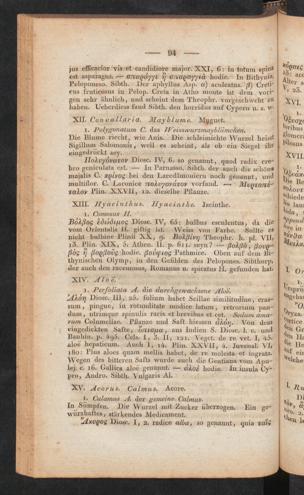 — 94 —
jus efficacior vis et candidiore major. XXI, 6: in totum spina
est asparagus. — σπαράγγι ἢ σπαραγγιὰ hodie. In Bithynia,
Peloponneso. Sibth. Der aphyllus Asp. α) aculeatus. β) Creti-
cus fruticosus in Pelop. Creta in Athо monte ist dem vori-
gen sehr ähnlich, und scheint dem Theophr. vorgeschwebt zu
haben. Ueberdiess fand Sibth. den horridus auf Cypern u. s. w.
XII. Convallaria. Mayblume. Muguet.
1. Polygonatum C. das Weisswurzmayblümchen.
Die Blume riecht, wie Asia. Die schleimichte Wurzel heisst
Sigillum Salomonis, weil es scheint, als ob ein Siegel ihr
eingedrückt sey.
Πολυγόνατον Diosc. IV, 6. so genannt, quod radix cre-
bro geniculata est. — In Parnasso. Sibth. der auch die schöne
majalis C. κρίνος bei den Lacedämoniern noch genannt, und
multiflor. C. Laconice πολυγονάτον vorfand. —
Plin. XXVII, 12. dieselbe Pflanze.
XIII. Hyacinthus. Hyacinthe. Jacinthe.
1. Comosus H.
Βόλβος ἐδώδιμος Diosc. IV, 65: bulbus esculentus, da die
vom Orientalis H. giftig ist. Weiss von Farbe. Sollte es
nicht bulbine Plinii XX, 9. Theophr. h. pl. VII,
13. Plin. XIX, 5. Athen. II. p. seyn? —
hodie. Pathmice. Oben auf dem Bi-
thynischen Olymp, in den Gefilden des Peloponnes. Sibthorp,
der auch den racemosus, Romanus u. spicatus H. gefunden hat.
XIV. Aloë.
1. Perfoliata A. die durchgewachsene Aloë.
Ἀλόη Diosc. III, 25. folium habet Scillae similitudine, cras-
sum, pingue, in rotunditate modice latum, retrorsum pan-
dum, utrinque spinulis raris et brevibus et cet. Sedum ama-
rum Columellae. Pflanze und Saft hiessen ἀλόη. Von dem
eingedickten Safte, aus Indien S. Diosc. l. c. und
Bauhin. p. Cels. I, 3. II, 121. Veget. de re vet. I, 45.
aloë hepaticum. Auch I, 14. Plin. XXVII, 4. Juvenal. VI,
180: Plus aloes quam mellis habet, de re molesta et ingrata.
Wegen des bitteren Safts wurde auch die Gentiana von Apu-
lej. c. 16. Gallica aloë genannt. — ἀλοὲ hodie. In insula Cy-
pro, Andro. Sibth. Vulgaris Al.
XV. Acorus. Calmus. Acore.
1. Calamus A. der gemeine Calmus.
In Sümpfen. Die Wurzel mit Zucker überzogen. Ein ge-
würzhaftes, stärkendes Medicament.
Ἄκορος Diosc. I, 2. radice so genannt, quia